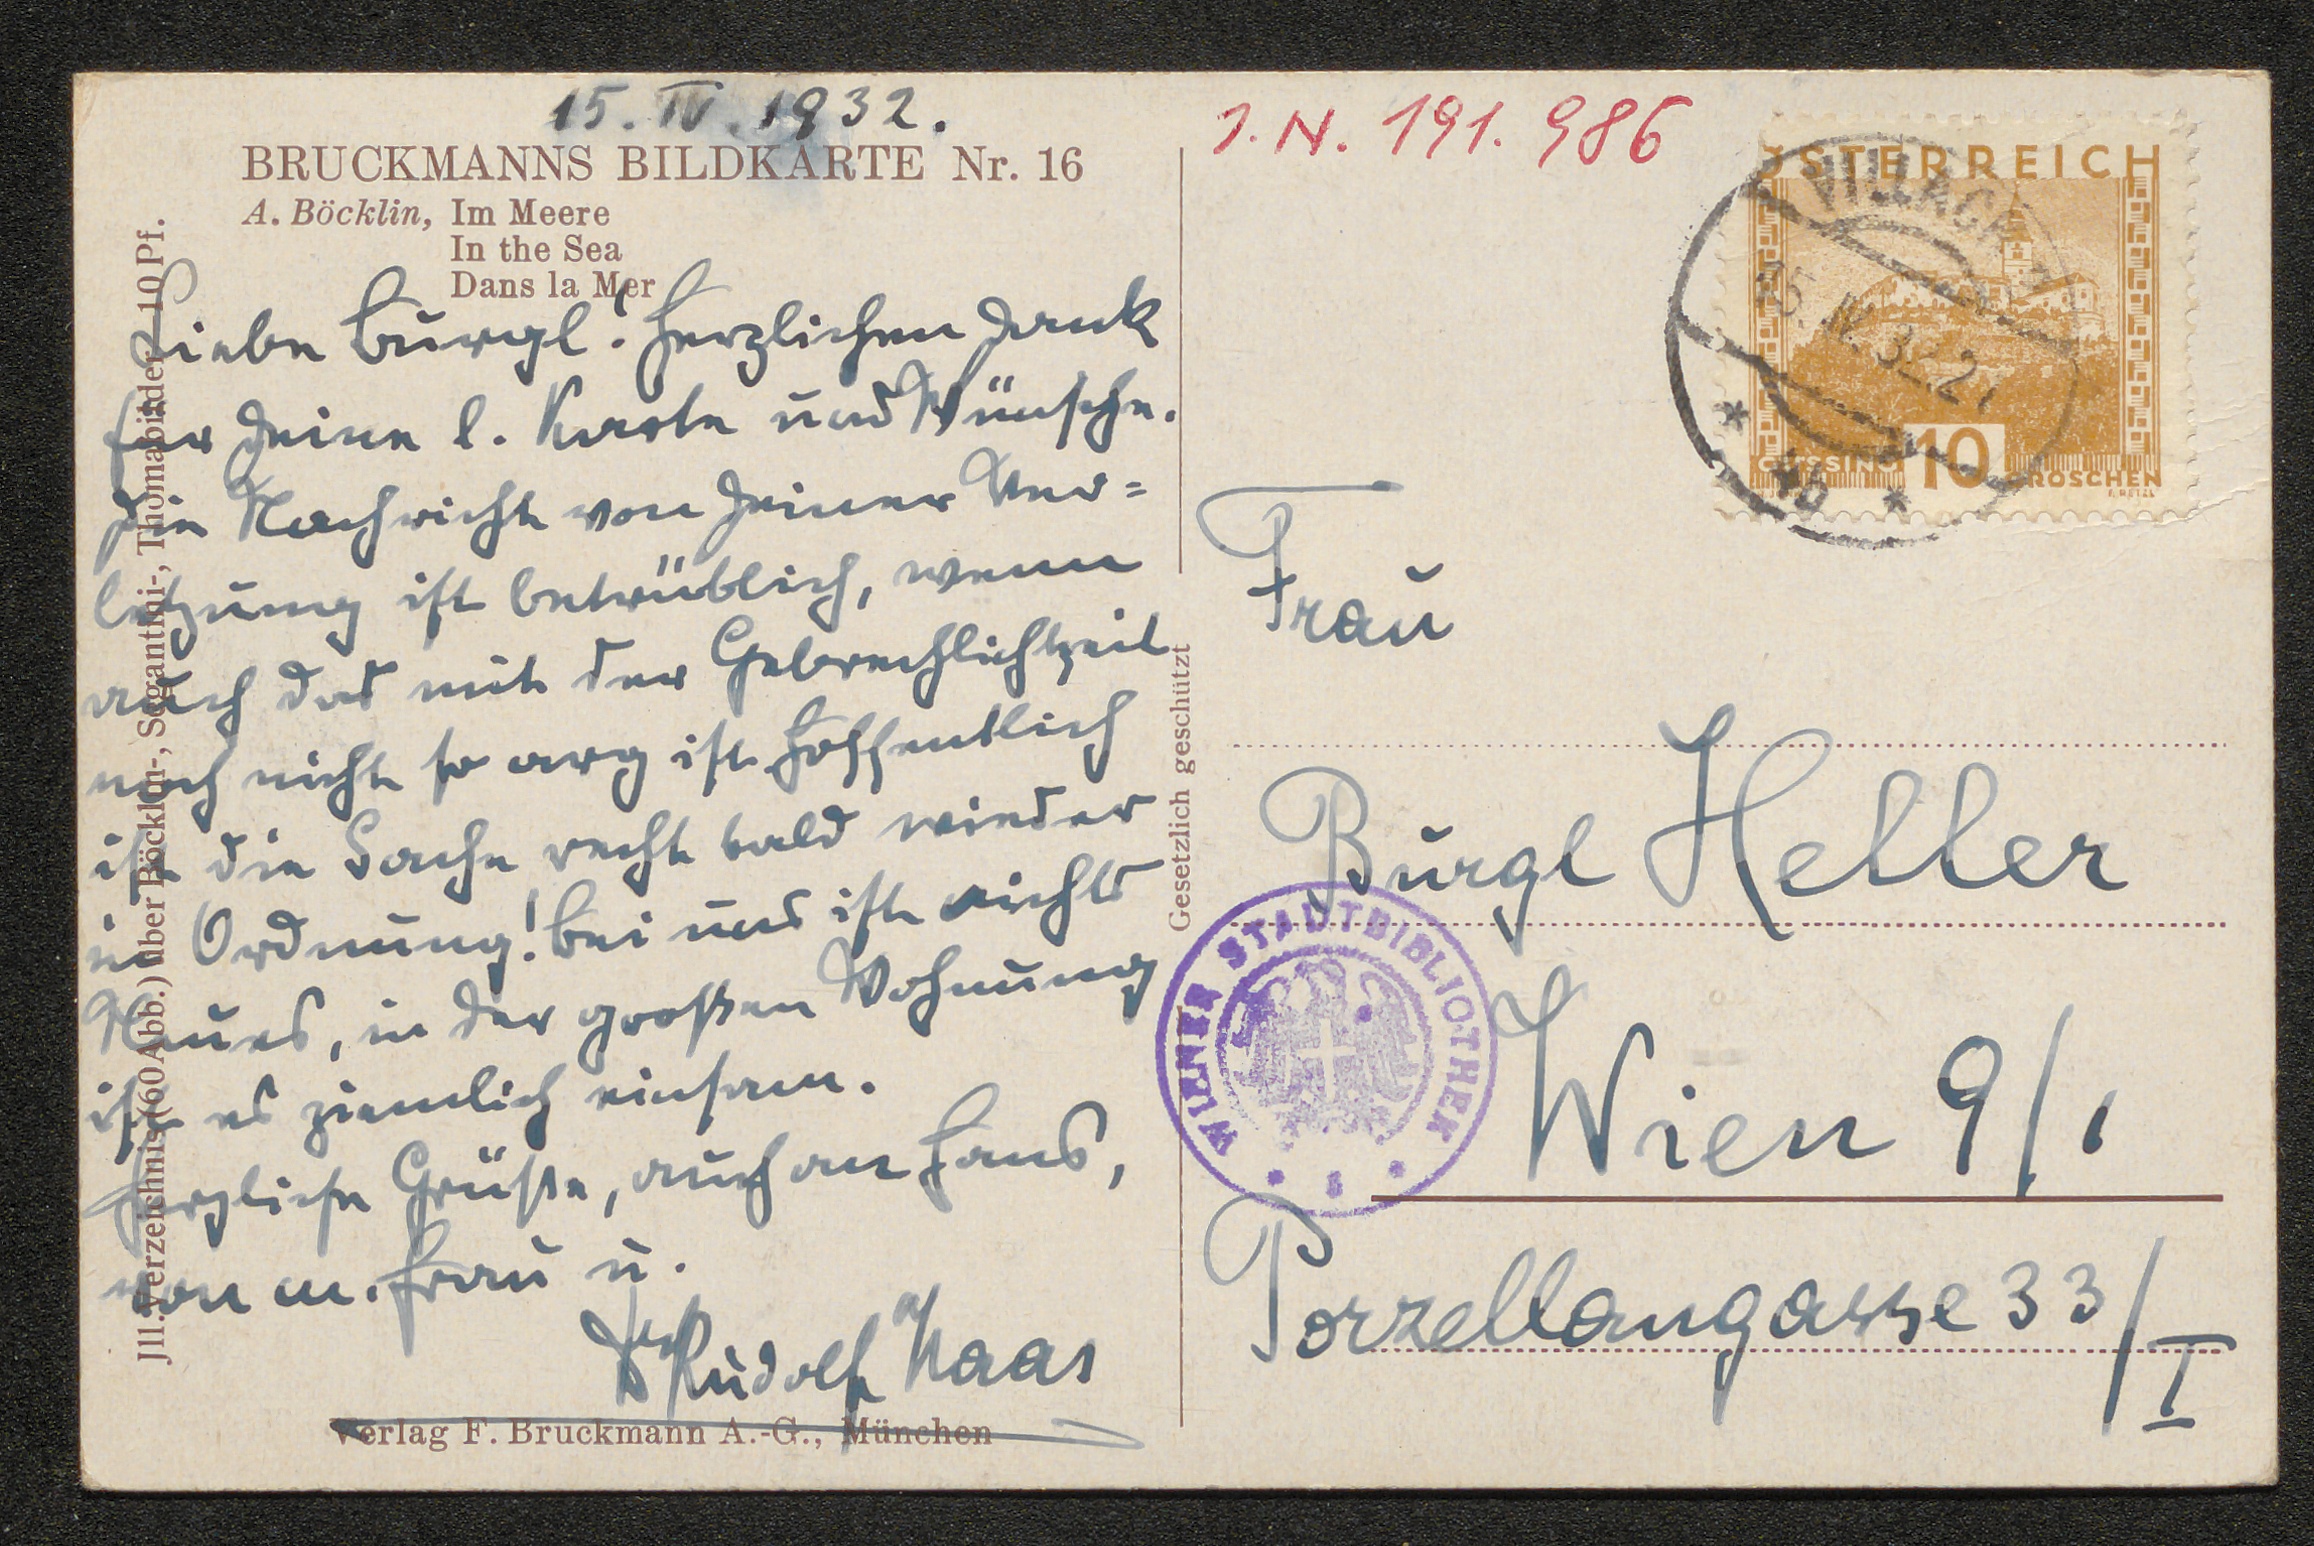 15. IV. 1932.
BRUCKMANNS BILDKARTE Nr. 16
A. Böcklin, Im Meere
In the Sea
Dans la Mer
Liebe Burgl! Herzlichen Dank
für Deine l. Karte und Wünsche.
Die Nachricht von Deiner Ver=
letzung ist betrüblich, wenn
auch das mit der Gebrechlichkeit
noch nicht so arg ist. Hoffentlich
ist die Sache recht bald wieder
in Ordnung! Bei uns ist nichts
Neues, in der großen Wohnung
ist es ziemlich einsam.
Herzliche Grüße, auch an Hans,
von m. Frau u.
Rudolf Haas
Verlag F. Bruckmann A.-G., München
Jll. Verzeichnis (60 Abb.) über Böcklin-, Segantini-, Thomabilder 10 Pf.
Gesetzlich geschützt
J. N. 191. 986
ÖSTERREICH
GÜSSING 10 GROSCHEN
VILLACH
15. IV. 32. 21
Frau
Burgl Heller
Wien 9/1
Porzellangasse 33/I
WIENER STADTBIBLIOTHEK